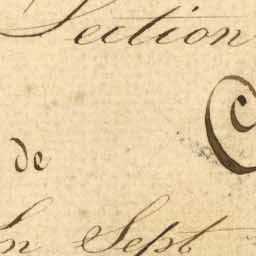 Section
de C
In Sept